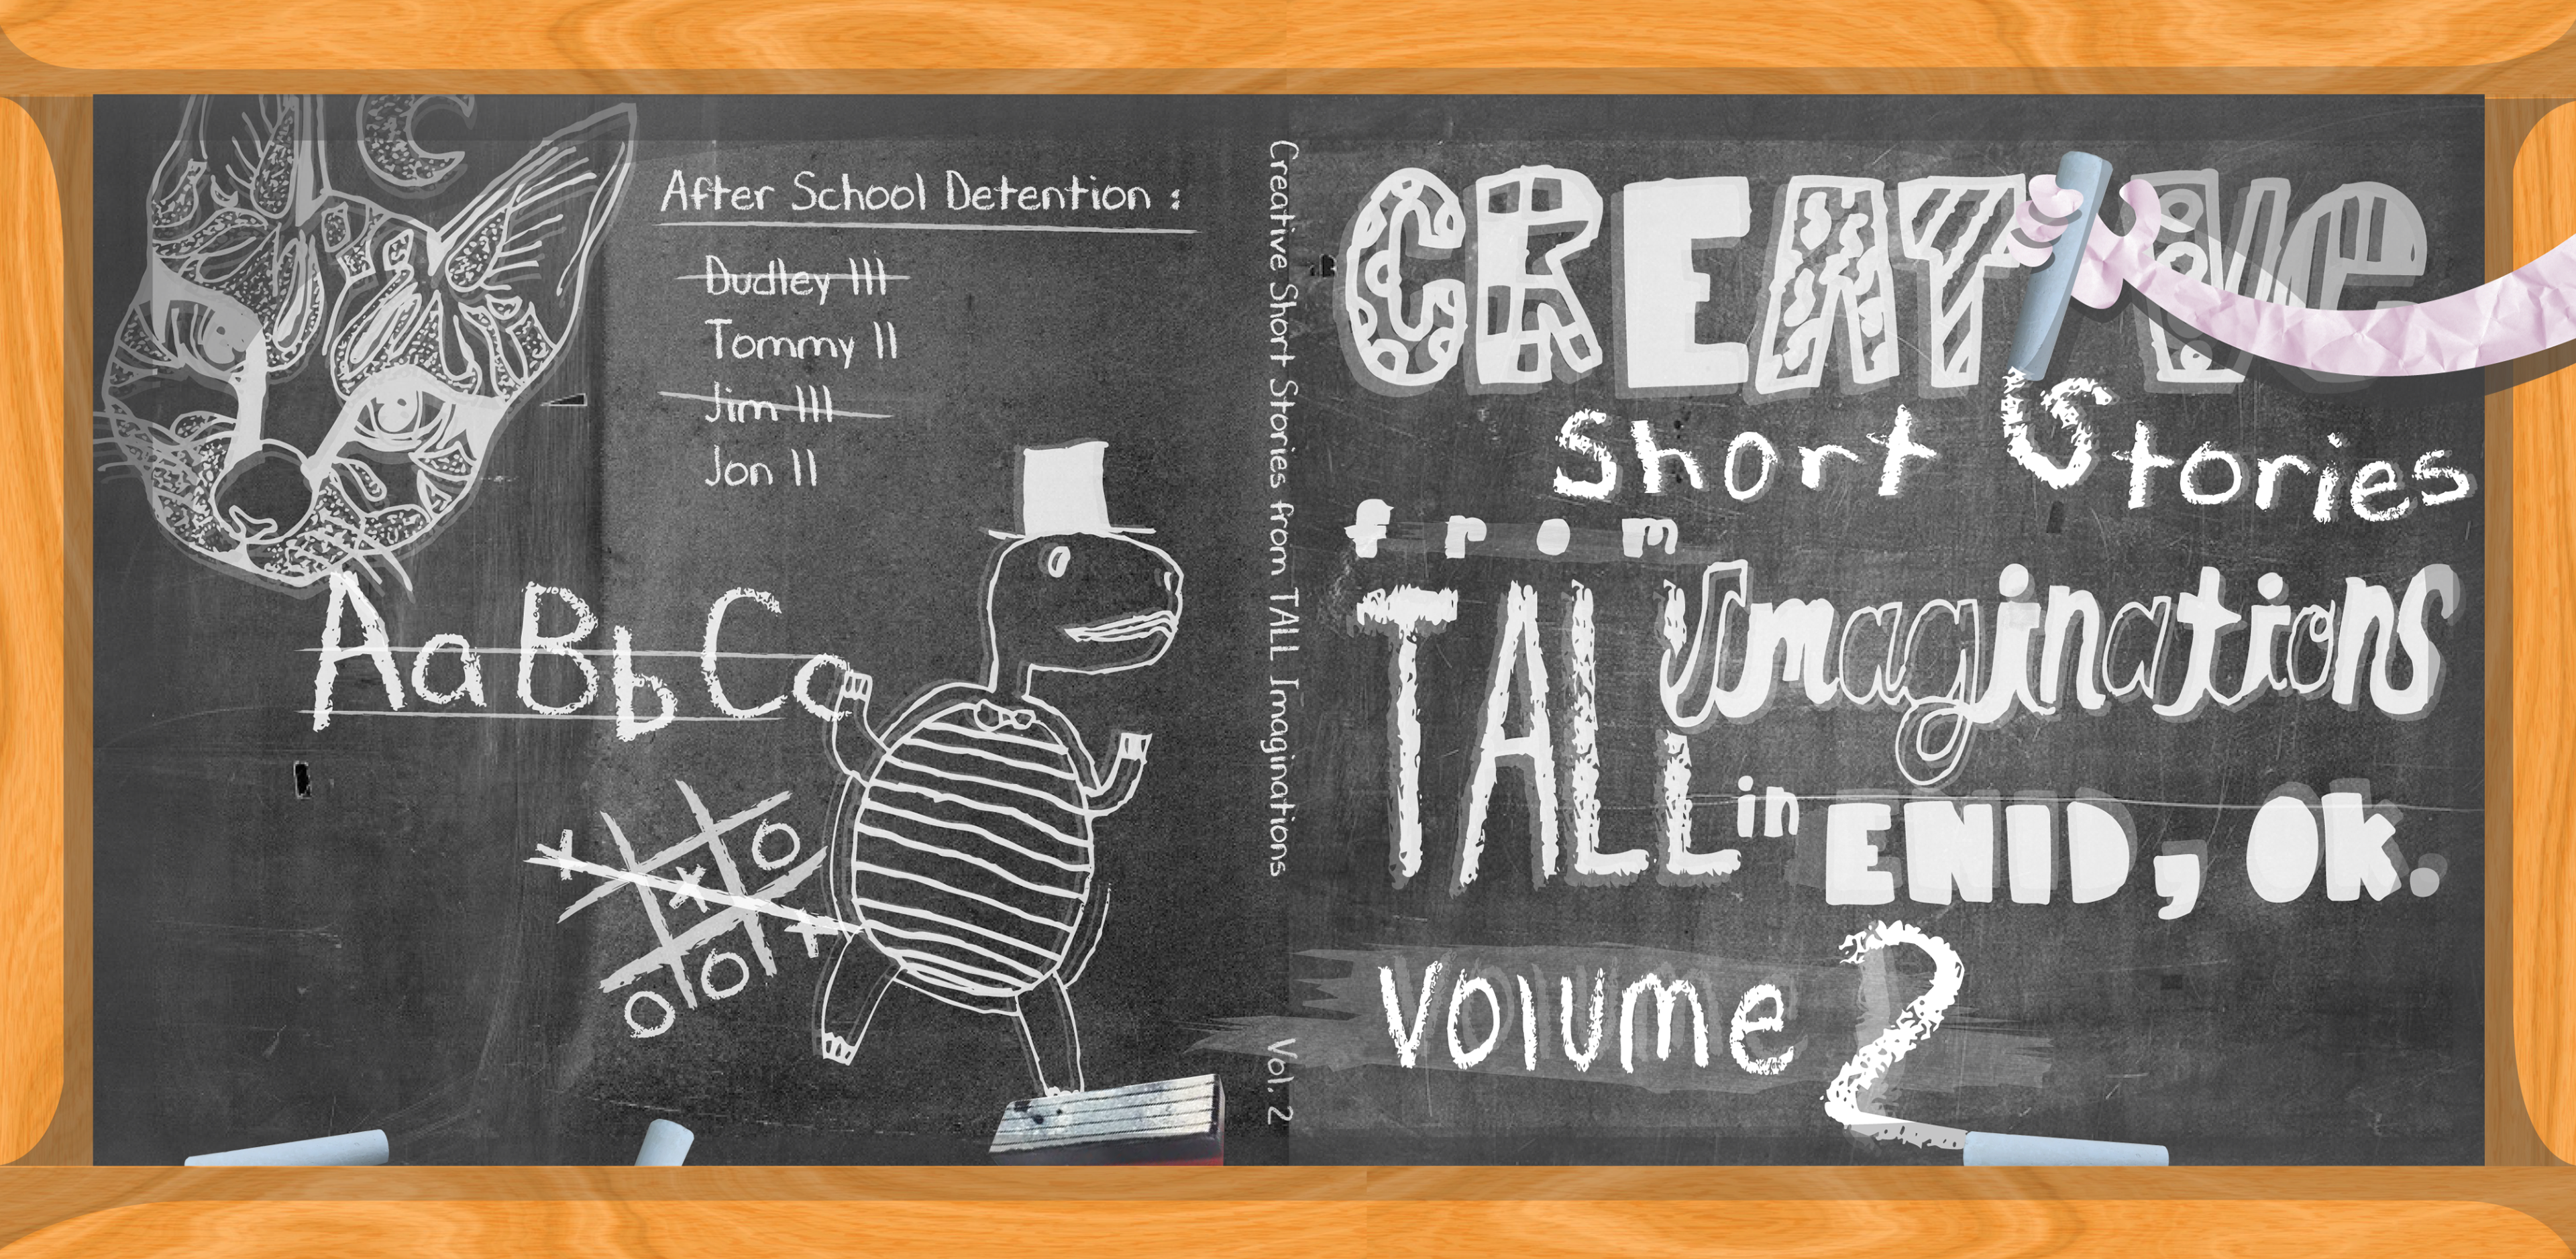 After School Detention :
Dudley III
Tommy II
Jim III
Jon II
Aa Bb Cc
O
X X X
O O
Creative Short Stories from TALL Imaginations Vol. 2
CREATIVe
Short Stories
from
TALL Imaginations
in ENID, OK.
Volume 2